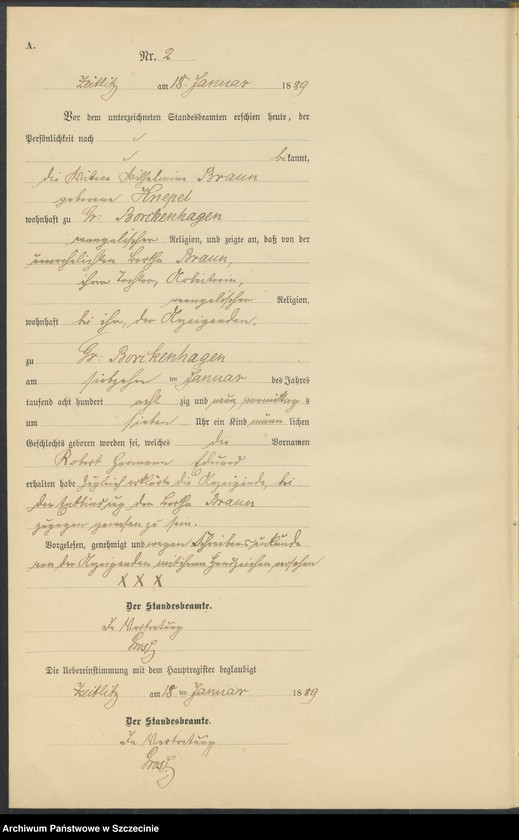 A.
Nr. 2
Zeitlitz am 18. Januar 1889
Vor dem unterzeichneten Standesbeamten erschien heute, der
Persönlichkeit nach
bekannt,
die Witwe Wilhelmine Braun
geborene Knepel
wohnhaft zu Gr: Borckenhagen
evangelischer Religion, und zeigte an, daß von der
unverehelichten Bertha Braun,
ihrer Tochter, Arbeiterin,
evangelischer Religion,
wohnhaft bei ihr, der Anzeigenden.
zu Gr: Borckenhagen
am siebzehn ten Januar des Jahres
tausend acht hundert acht zig und neun, vormittag s
um sieben Uhr ein Kind männ lichen
Geschlechts geboren worden sei, welches die Vornamen
Robert Hermann Eduard
erhalten habe Zugleich erklärte die Anzeigende, bei
der Entbindung der Bertha Braun
zugegen gewesen zu sein.
Vorgelesen, genehmigt und wegen Schreibensunkunde
von der Anzeigenden mit ihrem Handzeichen versehen
X X X
Der Standesbeamte.
In Vertretung
Die Uebereinstimmung mit dem Hauptregister beglaubigt
Zeitlitz am 18 ten Januar 1889
Der Standesbeamte.
In Vertretung
Archiwum Państwowe w Szczecinie